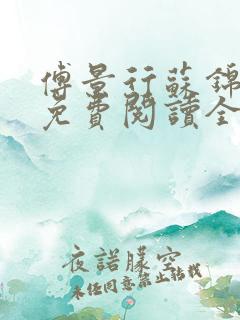 傅景行蘇錦
免費閱讀全
夜諾朦空
未任同意禁止转载